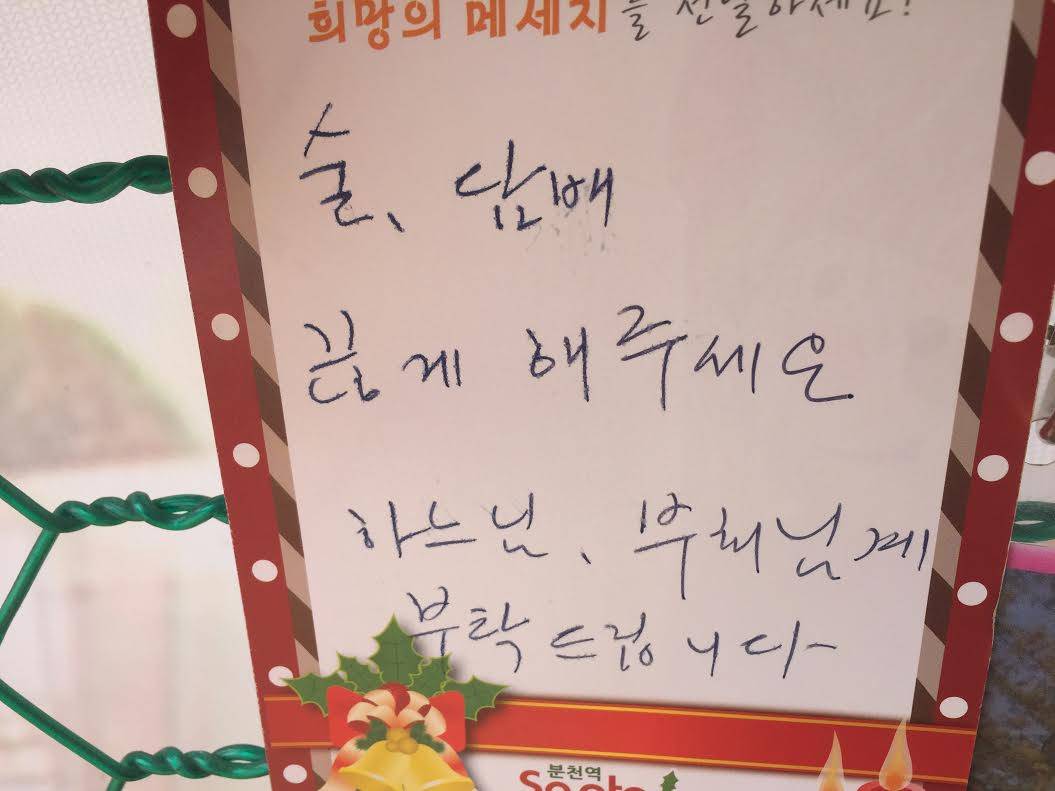 희망의 메세지를 전달하세요!
술, 담배
끊게 해주세요
하느님, 부처님게
부탁드립니다~
분천역
Santa